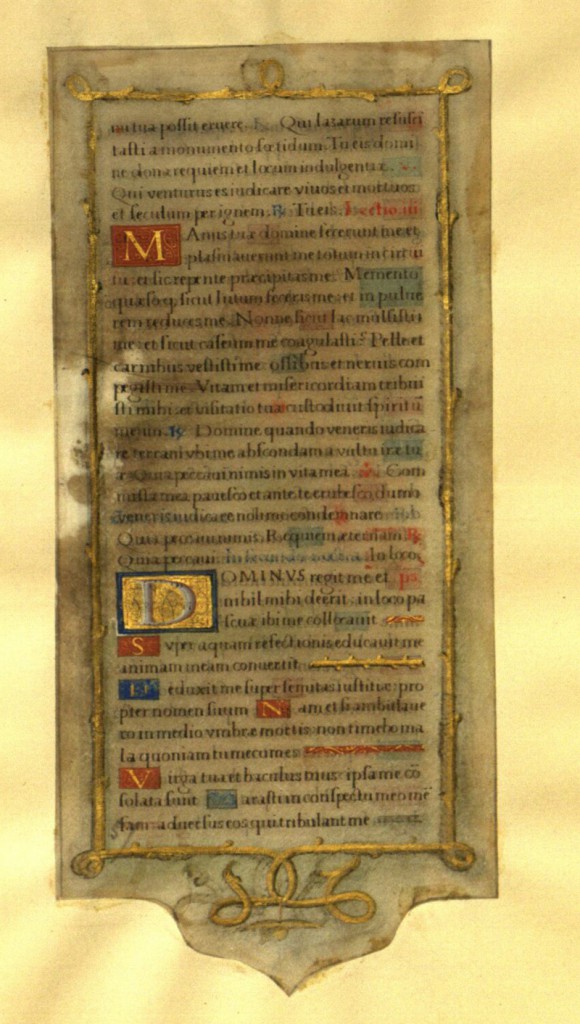 nu tua possit eruere. R. Qui lazarum resusci
tasti a monumento foetidum. Tu eis domi
ne dona requiem et locum indulgentiæ.
Qui venturus es iudicare viuos et mortuos
et seculum per ignem. R. Tu eis. Lectio iii
Manus tuæ domine fecerunt me et
plasmauerunt me totum in circui
tu: et sic repente præcipitas me. Memento
quæso q, sicut lutum feceris me: et in pulue
rem reduces me. Nonne sicut lac mulsisti
me: et sicut caseum me coagulasti? Pelle et
carnibus vestisti me: ossibus et neruis com
pegisti me. Vitam et misericordiam tribui
sti mihi: et visitatio tua custodiuit spiritū
meum. R. Domine quando veneris iudica
re terram vbi me abscondam a vultu iræ tu
æ Quia peccaui nimis in vita mea. Com
missa mea pauesco et ante te erubesco dum
veneris iudicare noli me condemnare.
Quia peccaui nimis. Requiem æternam. R.
Quia peccaui. In loco
DOMINVS regit me et ps.
nihil mihi deerit: in loco pa
scuæ ibi me collocauit
Super aquam refectionis educauit me
animam meam conuertit
Deduxit me super semitas iustitiæ: pro
pter nomen suum Nam et si ambulaue
ro in medio vmbræ mortis: non timebo ma
la quoniam tu mecum es
Virga tua et baculus tuus: ipsa me cō
solata sunt Parasti in conspectu meo mē
sam: aduersus eos qui tribulant me